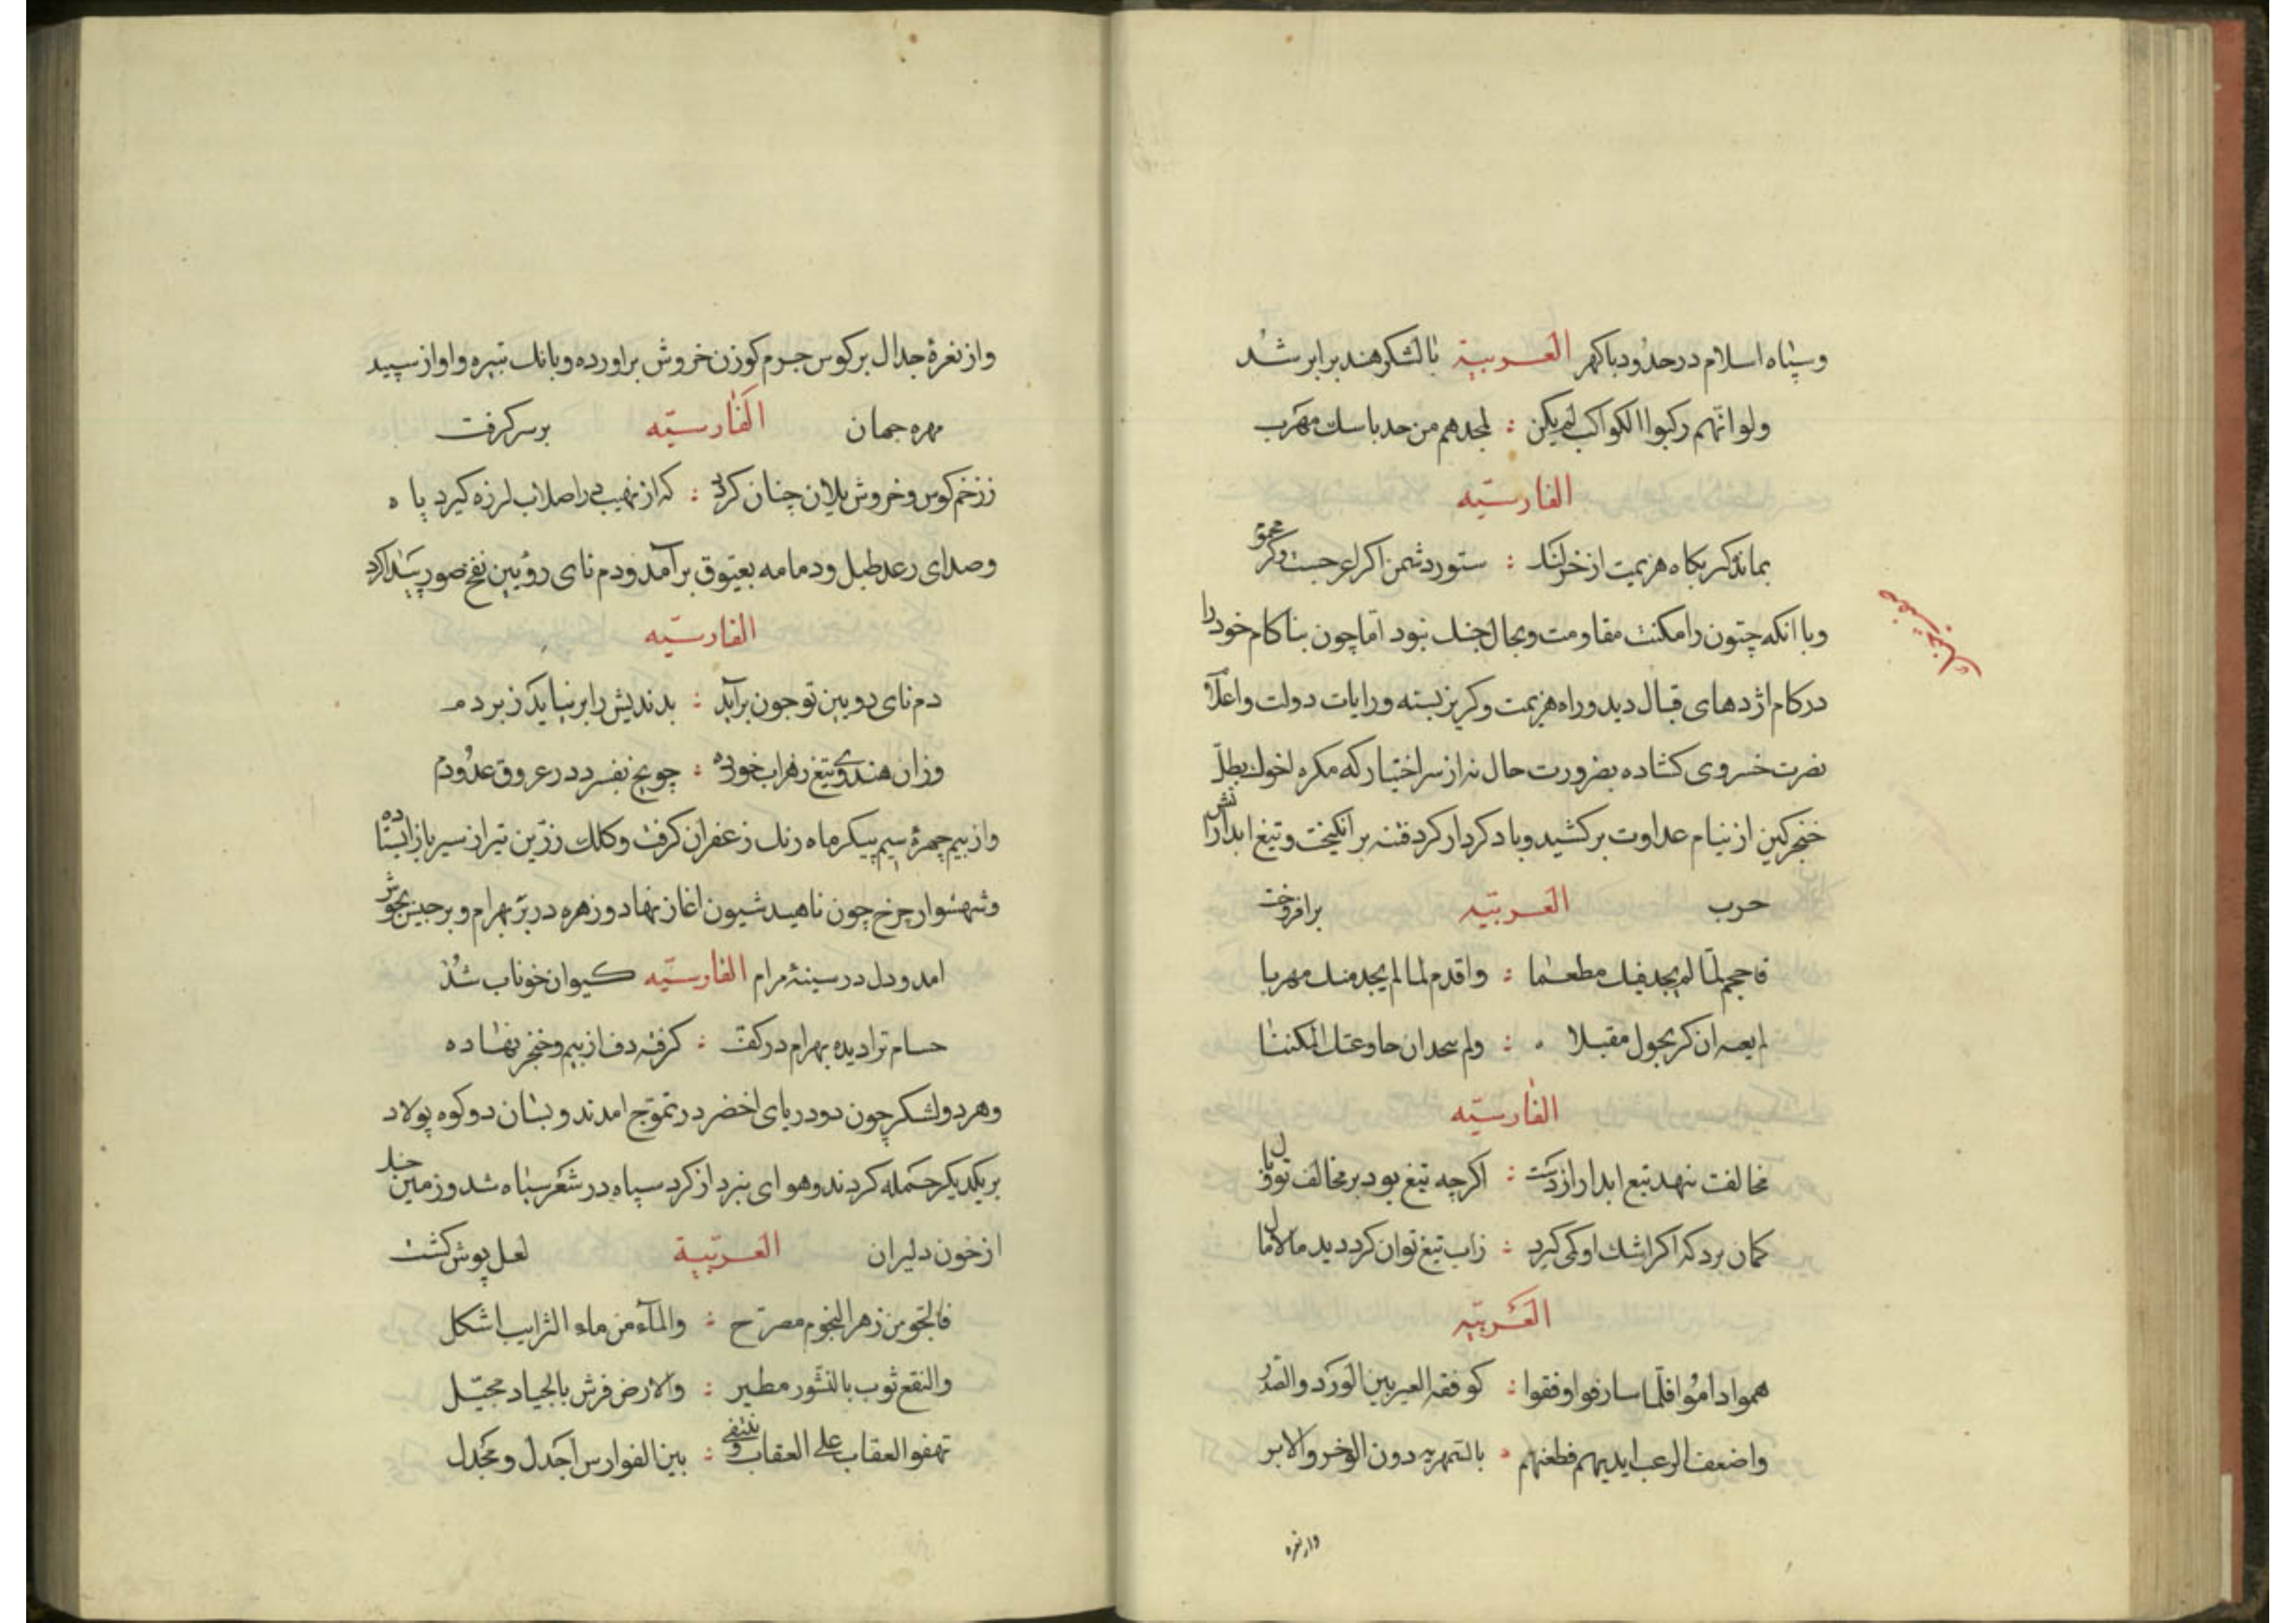 وسپاه اسلام در حدود باكهر العربية بالشكر هند برابر شد
ولو انهم ركبوا الكواكب لم يكن : لمجدهم من حد باسك مهرب
الفارسيّه
بماند كر بكاه هزيمت از خر لنك : ستور دشمن اكر اعرجست وكر
وبا انكه چتون را مكنت مقاومت ومجال جنك نبود اما چون بناكام خود را
در كام اژدهاى قبال ديد و راه هزيمت وكريز بسته ورايات دولت واعلام
نصرت خسروى كشاده بضرورت حال نه از سر اختيار كه مكره اخوك بطل
خنجر كين از نيام عداوت بركشيد وباد كردار كرد فتنه برانكيخت وتيغ ابدار
حرب العربيّه برافروخت
فاحجم لما لم يجد فيك مطعما : واقدم لما لم يجد منك مهربا
ان كر يحول مقبلا : ولم
الفارسيّه
مخالفت ننهد تيغ ابدار از دست : اكرچه تيغ بود بر مخالف تو
كمان برد كه اكر اشك او كمى كيرد : زاب تيغ توان كرد ديد
العربيّه
فلما : بين الورد والصدر
واضعف الرعب ايديهم فطعنهم : بالسمهرية دون الوخز والابر
واز نعره
واز نعرهٔ جدال بر كوس جرم كوزن خروش براورده وبانك تبيره واواز سپيد
مهره جهان الفارسيّه برسر كرفت
ز زخم كوس وخروش يلان چنان كردد : كه از نهيب در اصلاب لرزه كيرد
وصداى رعد طبل ودمامه بعيوق برآمد ودم ناى رويين نفخ صور پيدا كرد
الفارسيّه
دم ناى رويين تو چون برآيد : بدنديش را بر نيايد ز بر دم
وزان هندوى تيغ زهراب خورده : چو يخ بفسرد در عروق عدو دم
واز بيم چهرهٔ سيم پيكر ماه رنك زعفران كرفت وكلك زرين تير از سير باز ايستاده
وشهسوار چرخ چون ناهيد شيون اغاز نهاد و زهره در بر بهرام وبرجيس بجوش
امد ودل در سينهٔ مرام الفارسيّه كيوان خوناب شد
حسام ترا ديده بهرام در كفت : كرفته دف از بيم وخنجر نهاده
وهر دو لشكر چون دو درياى اخضر در تموج امدند وبسان دو كوه پولاد
بر يكديكر حمله كردند وهواى نبرد از كرد سپاه در شعر سياه شد وزمين
از خون دليران العربيّة لعل پوش كشت
فالجو من زهر النجوم مصرّح : والمآء من ماء الترايب اشكل
والنقع ثوب بالنسور مطير : والارض فرش بالجياد مخيّل
تهفو العقاب على العقاب : بين الفوارس اجدل ومجدل